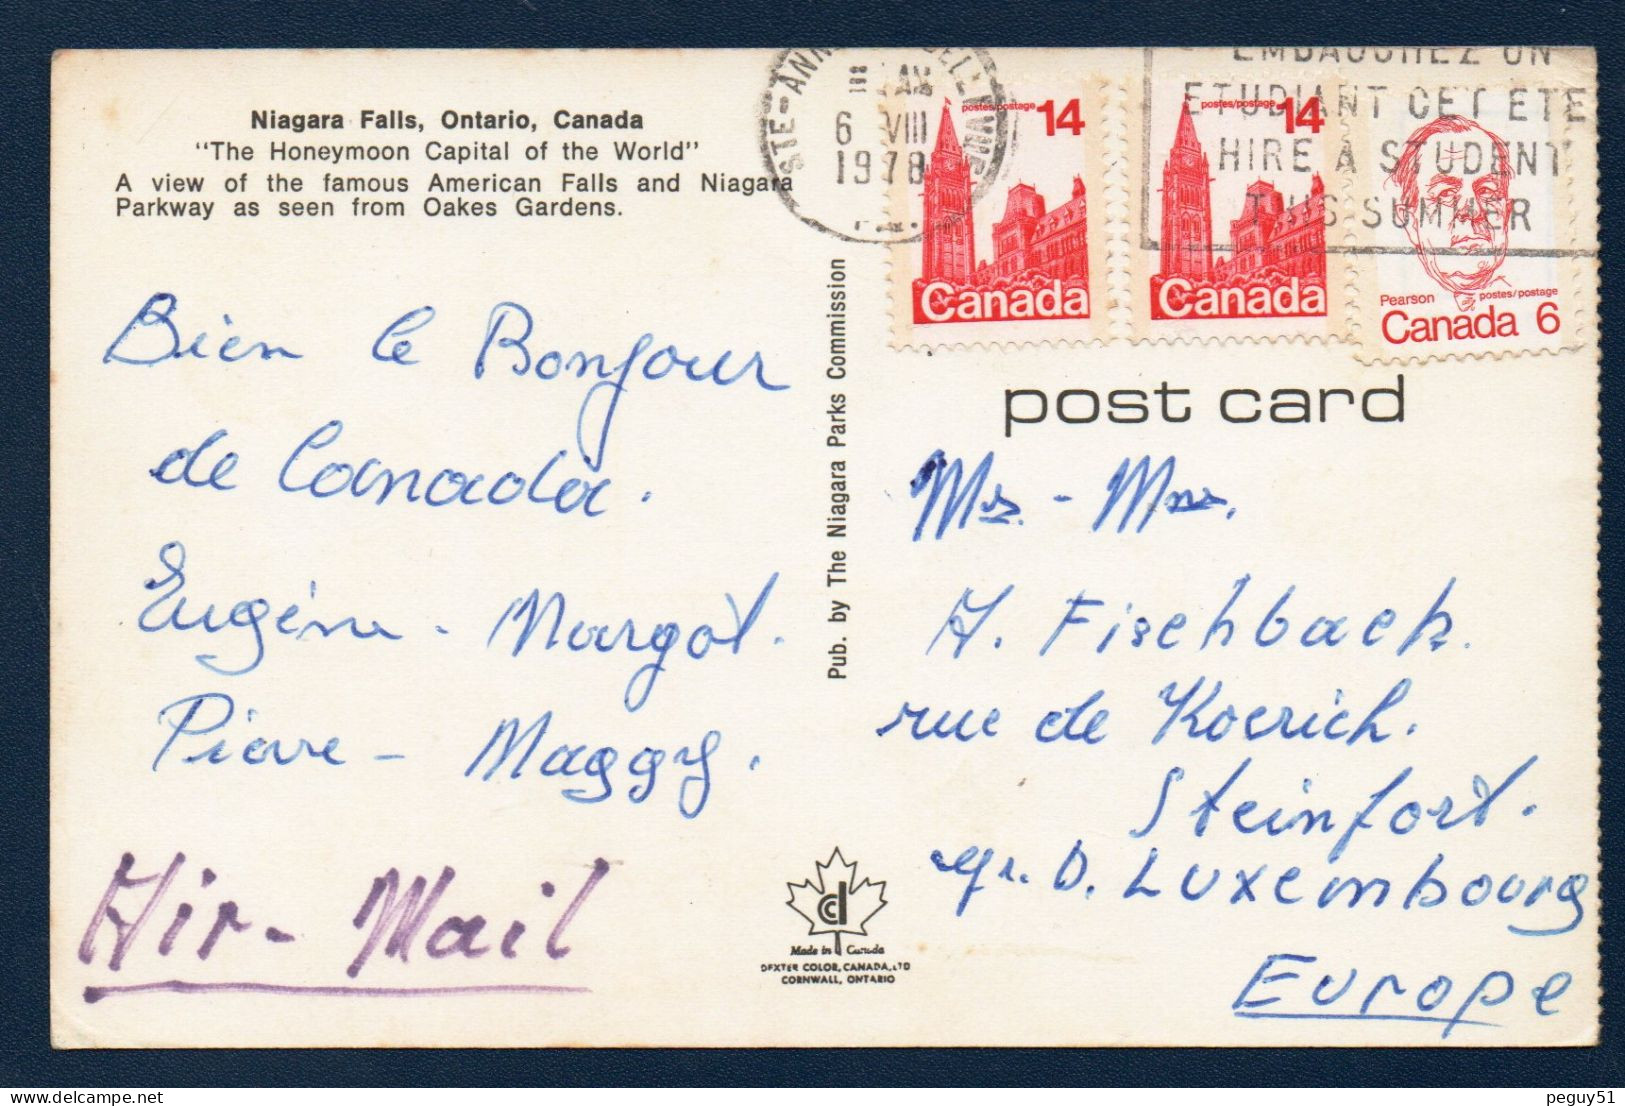 Niagara Falls, Ontario, Canada
"The Honeymoon Capital of the World"
A view of the famous American Falls and Niagara
Parkway as seen from Oakes Gardens.
Bien le Bonjour
de Canada.
Eugène - Margot.
Pierre - Maggy.
Air-Mail
Pub. by The Niagara Parks Commission
Made in Canada
DEXTER COLOR, CANADA, LTD
CORNWALL, ONTARIO
STE-ANNE
6 VIII
1978
EMBAUCHEZ UN
ETUDIANT CET ETE
HIRE A STUDENT
THIS SUMMER
postes/postage 14
Canada
postes/postage 14
Canada
Pearson postes/postage
Canada 6
post card
Mrs. - Mme.
A. Fischbach.
rue de Koerich.
Steinfort.
gr. D. Luxembourg
Europe
peguy51